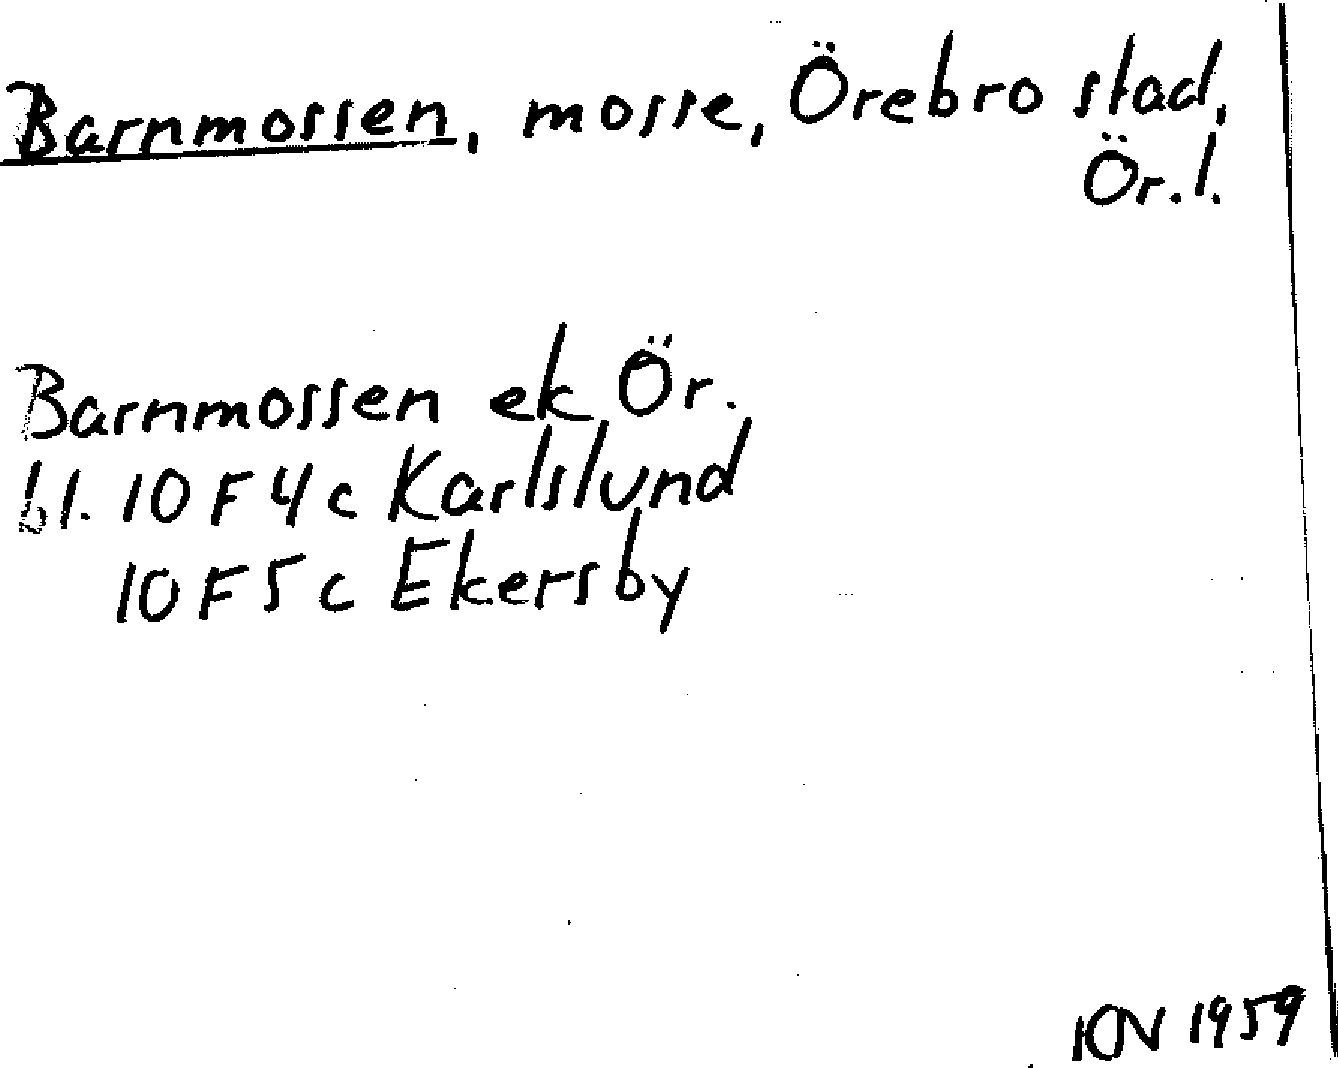 Barnmossen, mosse, Örebro stad,
Ör.l.
Barnmossen ek Ör.
bl. 10 F 4 c Karlslund
10 F 5 c Ekersby
1959